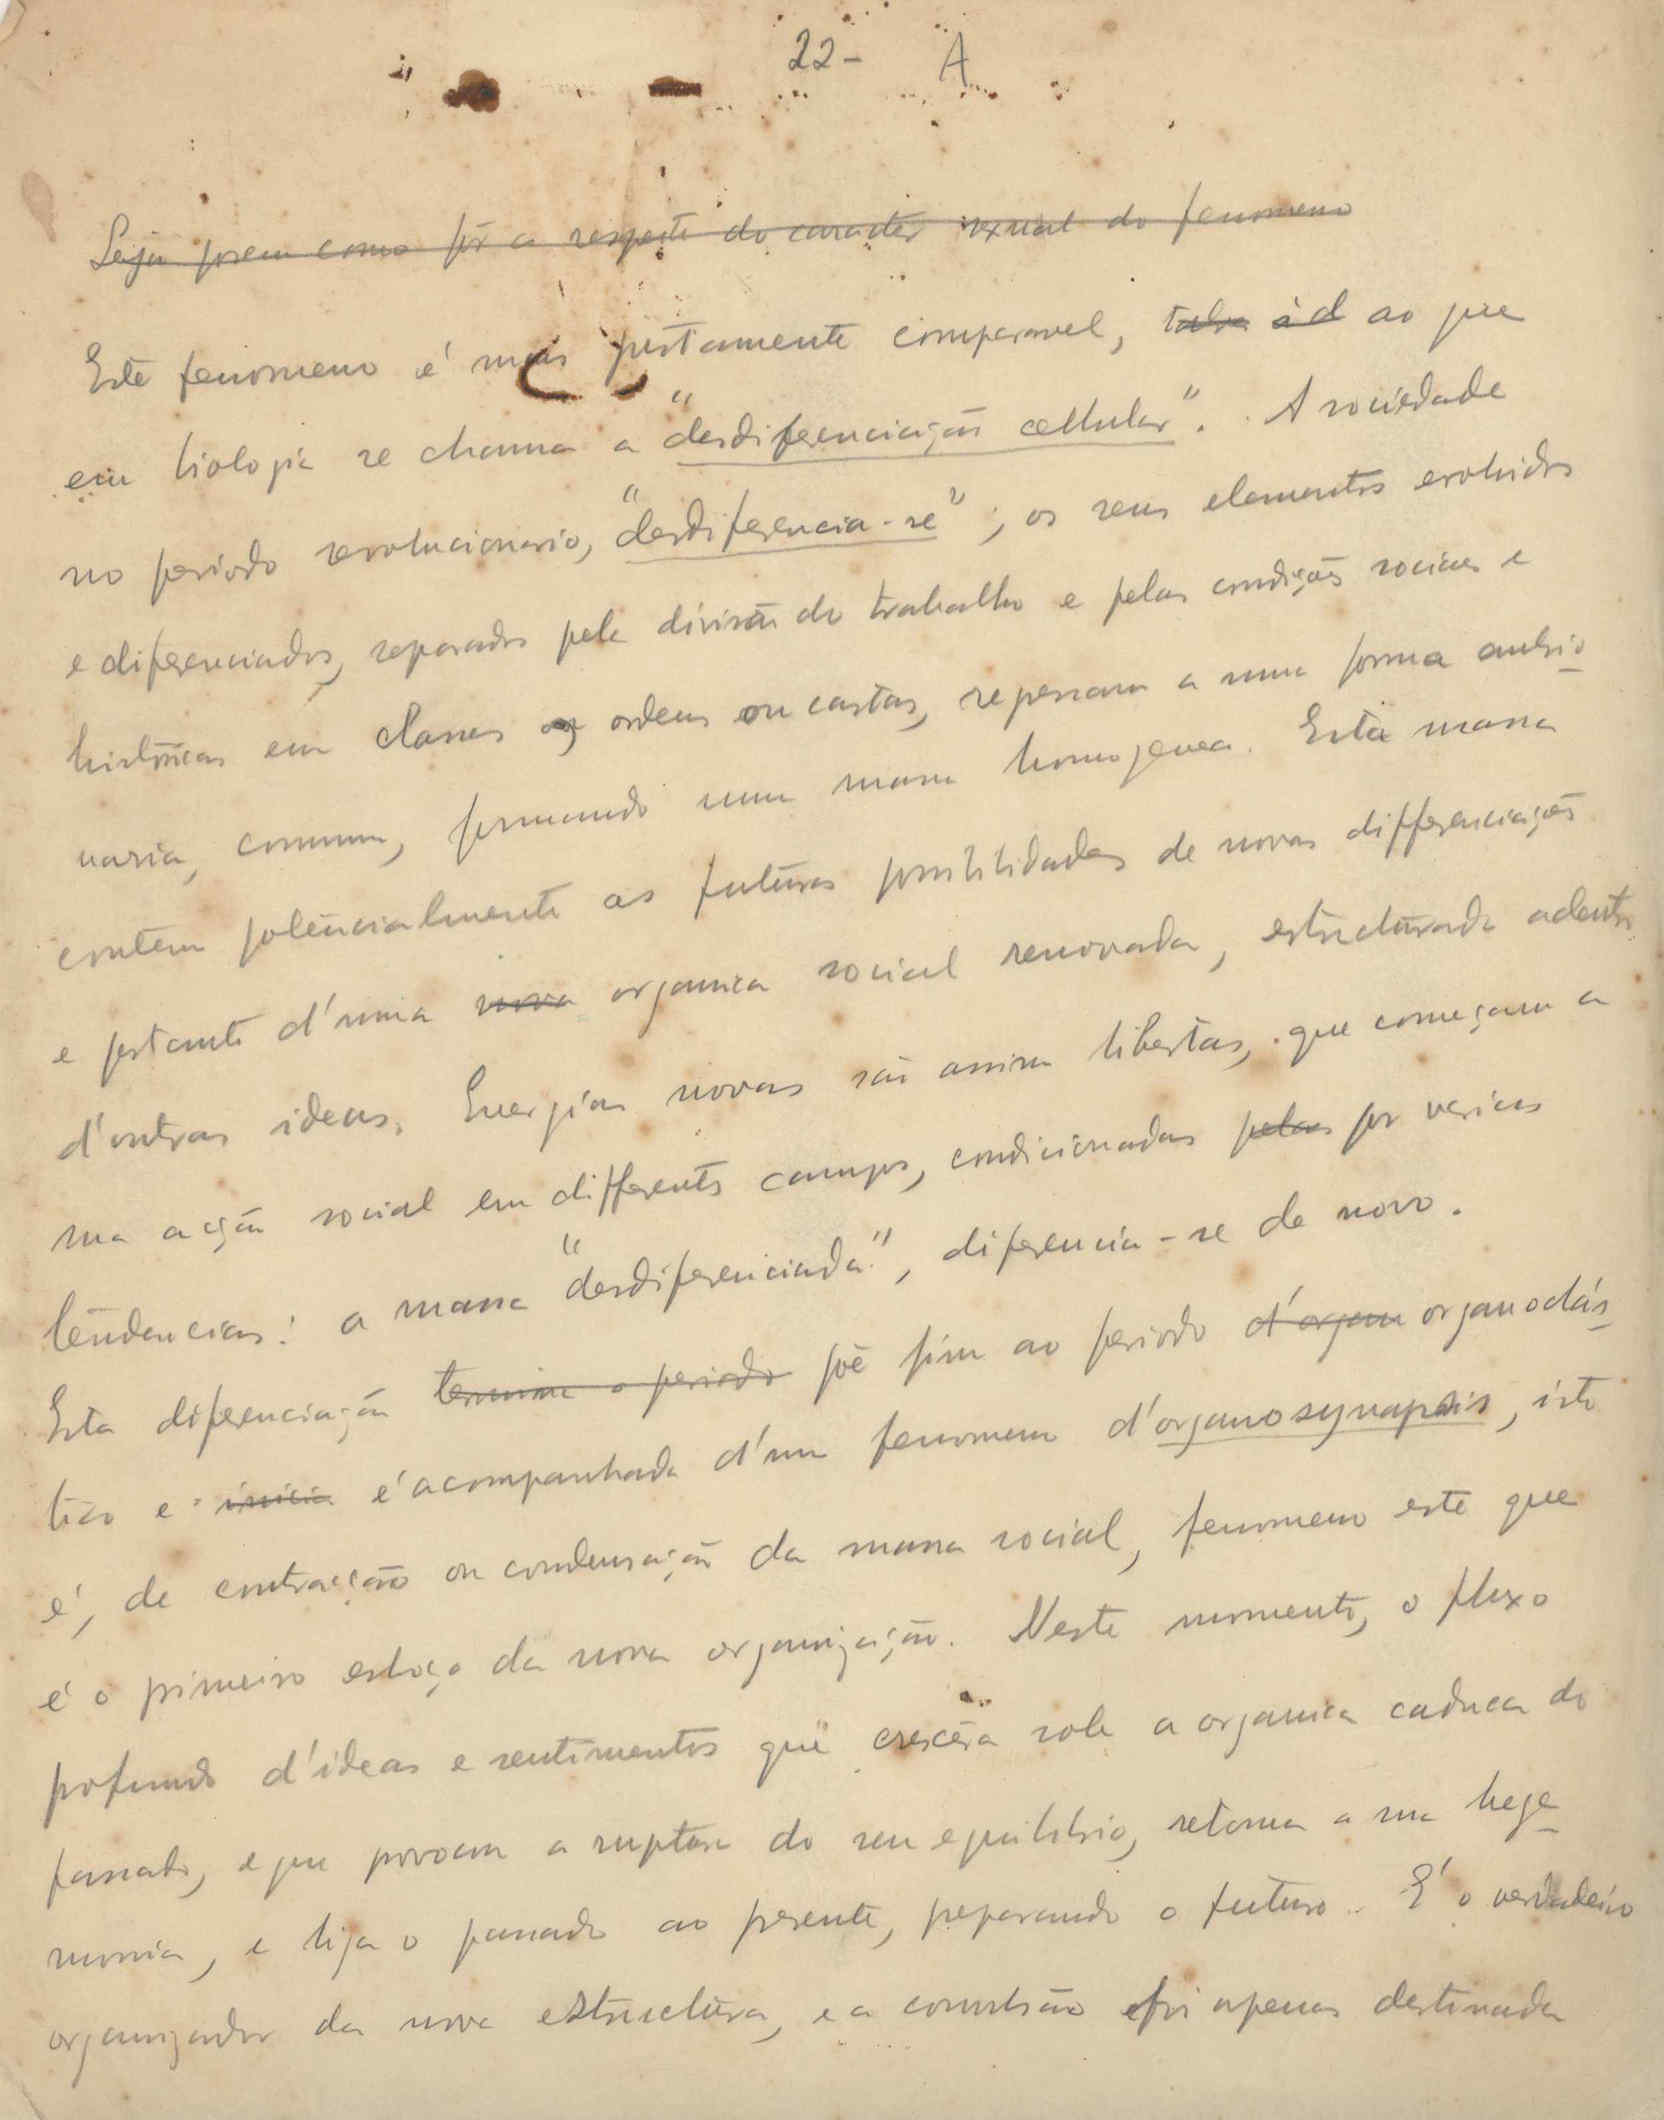 22- A
Seja porem como fôr a respeito do caracter sexual do fenomeno
Este fenomeno é mais justamente comparavel, talve á d ao que
em biologia se chama a "desdiferenciação cellular". A sociedade
no periodo revolucionario, "desdiferencia-se"; os seus elementos evoluidos
e diferenciados, separados pela divisão do trabalho e pelas condições sociaes e
históricas em classes ordens ou castas, regressam a uma forma embrio
naria, commum, formando uma massa homogenea. Esta massa
contem potencialmente as futuras possibilidades de novas differenciações
e portanto d'uma nova organica social renovada, estructurada adentro
d'outras ideas. Energias novas são assim libertas, que começam a
sua acção social em differentes campos, condicionadas pelas por varias
tendencias: a massa "desdiferenciada", diferencia-se de novo.
Esta diferenciação termina o periodo põe fim ao periodo d'organ organoclás
tico e inicia é acompanhada d'um fenomeno d'organosynapsis, isto
é, de contracção ou condensação da massa social, fenomeno este que
é o primeiro esboço da nova organização. Neste momento, o fluxo
profundo d'ideas e sentimentos que crescera sob a organica caduca do
passado, e que provocou a ruptura do seu equilibrio, retoma a sua hege
monia, e liga o passado ao presente, preparando o futuro. É o verdadeiro
organizador da nova estructura, e a convulsão foi apenas destinada